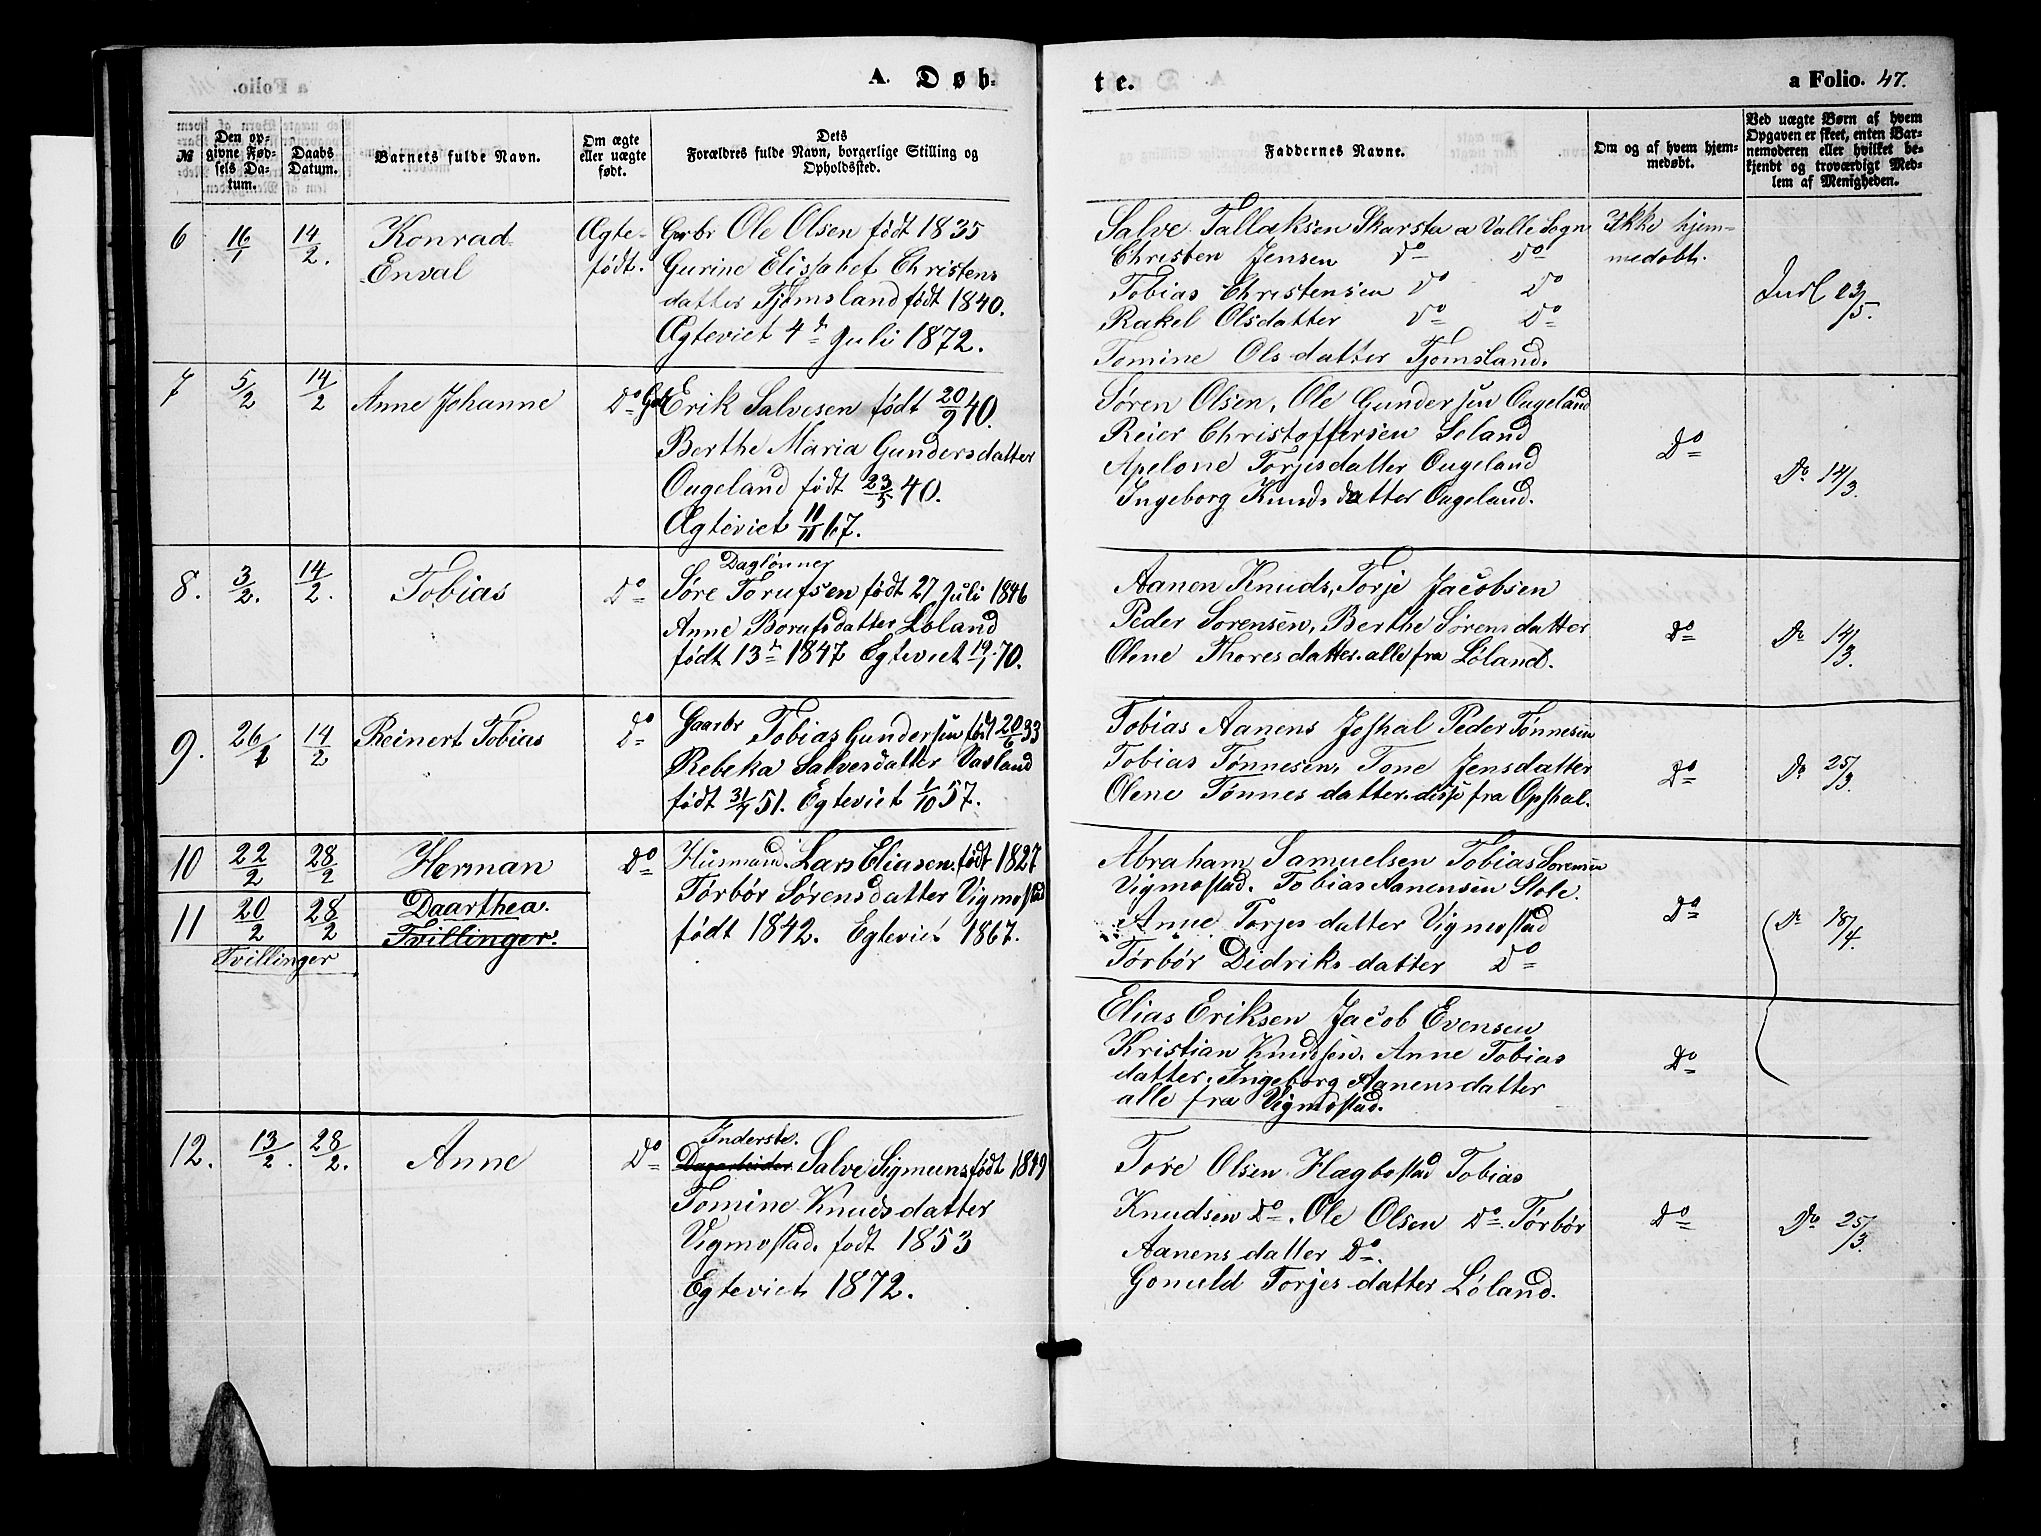 A. Døb-
te.
a Folio. 47.
№
Den op-
givne Fød-
sels Da-
tum.
Daabs
Datum.
Barnets fulde Navn.
Om ægte
eller uægte
født.
Dets
Forældres fulde Navn, borgerlige Stilling og
Opholdssted.
Faddernes Navne.
Om og af hvem hjem-
medøbt.
Ved uægte Børn af hvem
Opgaven er skeet, enten Bar-
nemoderen eller hvilket be-
kjendt og troværdigt Med-
lem af Menigheden.
6 16/1 14/2. Konrad
Enval
Ægte-
født.
Gbr Ole Olsen født 1835
Gurine Elisabet Christens
datter Tjømsland født 1840.
Ægteviet 4de Juli 1872.
Salve Tallaksen Skarsta a Valle Sogn
Christen Jensen Do Do
Tobias Christensen Do Do
Rakel Olsdatter Do Do
Tomine Olsdatter Tjomsland.
Ikke hjem-
medøbt.
Indl 23/5.
7 5/2 14/2 Anne Johanne Do
Erik Salvesen født 20/9 40.
Berthe Maria Gundersdatter
Ougeland født 23/5 40.
Ægteviet 11/11 67.
Søren Olsen, Ole Gundersen Ougeland
Reier Christoffersen Seland
Apelone Torjesdatter Ougeland
Ingeborg Knudsdatter Ougeland.
Do
Do 14/3.
8. 3/2. 14/2. Tobias Do
Daglønner
Søre Torufsen født 27 Juli 1846
Anne Borufsdatter Løland
født 13de 1847 Egteviet 19/1 70.
Aanen Knuds, Torje Jacobsen
Peder Sorensen, Berthe Sørensdatter
Olene Thoresdatter alle fra Løland.
Do
Do 14/3.
9. 26/1 14/2 Reinert Tobias Do
Gaarbr Tobias Gundersen født 20/6 33
Rebeka Salvesdatter Vasland
født 31/7 51. Egteviet 1/10 57.
Tobias Aanens Joshal Peder Tønnesen
Tobias Tønnesen, Tone Jensdatter
Olene Tønnesdatter disse fra Opshal.
Do
Do 25/3.
10 22/2 28/2 Herman Do
11 20/2 28/2 Daarthea.
Tvillinger.
Tvillinger
Husmand Lars Eliasen født 1827
Tørbør Sørensdatter Vigmostad
født 1842. Egteviet 1867.
Abraham Samuelsen Tobias Sorensen
Vigmostad. Tobias Aanensen Stole.
Anne Torjesdatter Vigmostad
Tørbør Didriksdatter Do
Do
Do 18/4.
Elias Eriksen Jacob Evensen
Kristian Knudsen. Anne Tobias
datter, Ingeborg Aanensdatter
alle fra Vigmostad.
Do
12. 13/2. 28/2. Anne Do
Inderste.
Dagarbeider Salve Sigmuns født 1849
Tomine Knudsdatter
Vigmostad. født 1853
Egteviet 1872.
Tore Olsen Hægbostad Tobias
Knudsen Do. Ole Olsen Do. Tørbør
Aanensdatter Do.
Gonuld Torjesdatter Løland.
Do
Do 25/3.